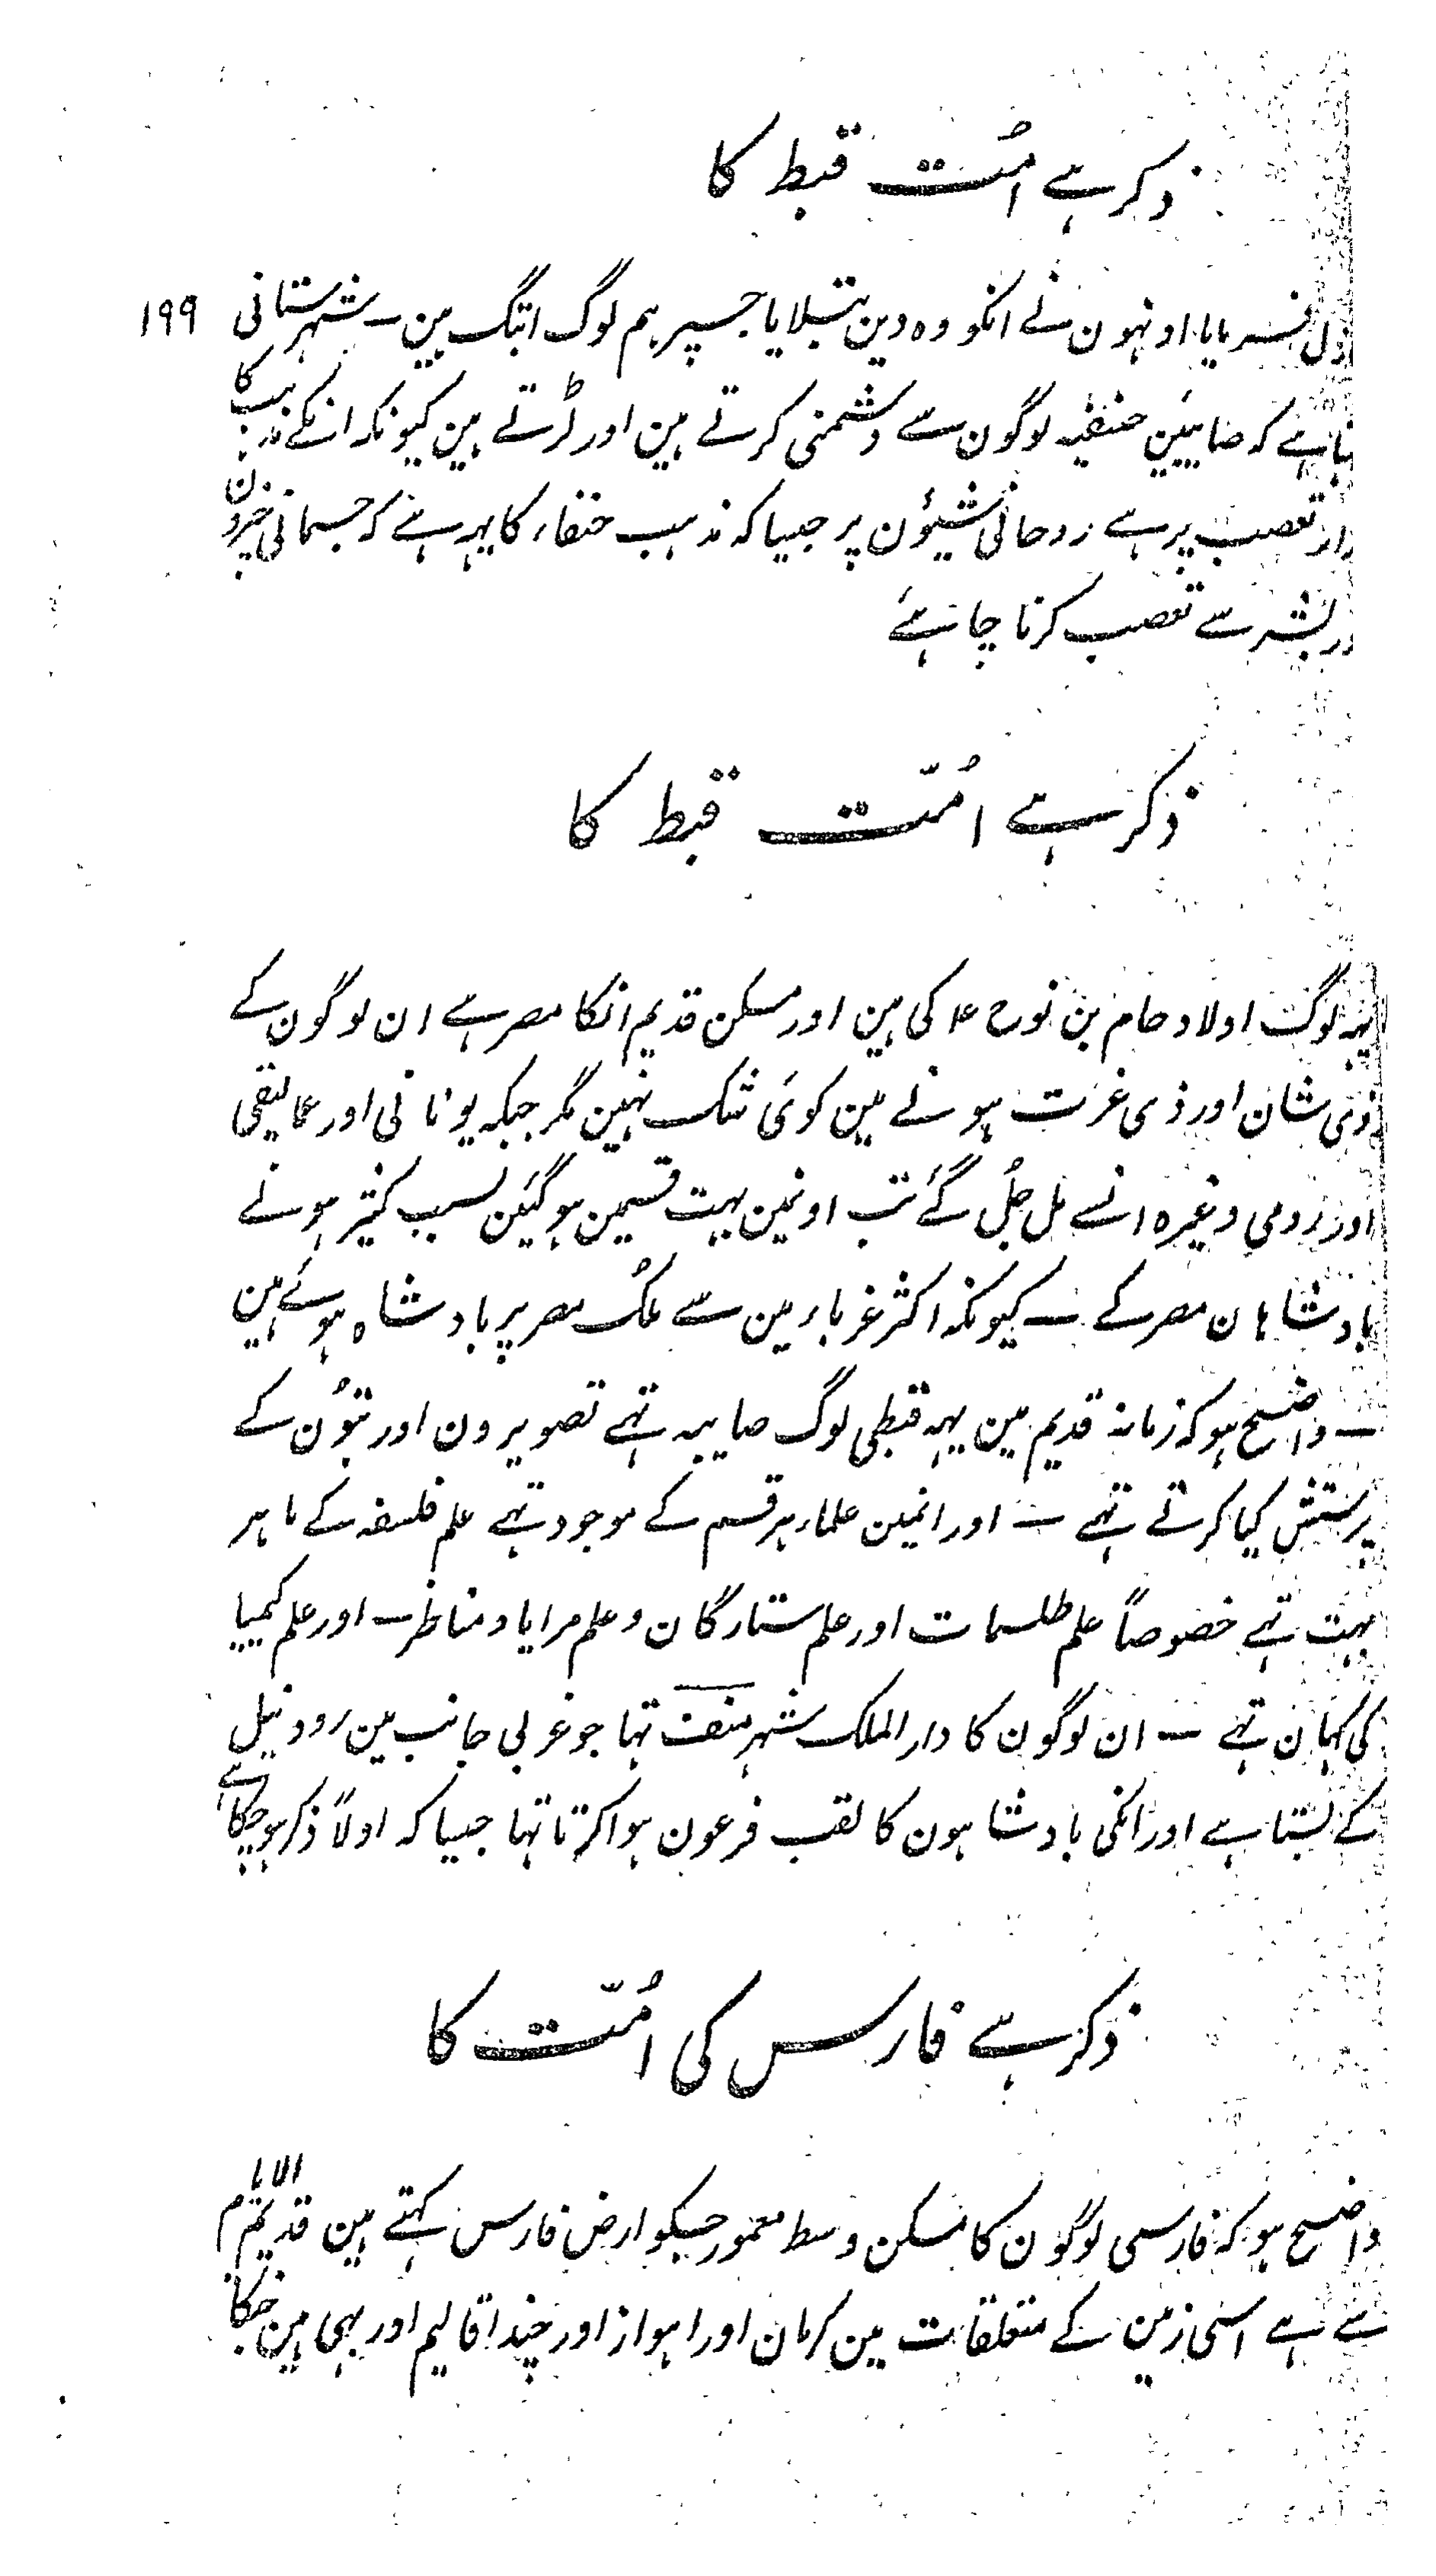 ذکر ہے امت قبط کا
۱۹۹
فرمایا اونہون نے انکو وہ دین بتلایا جسپر ہم لوگ ابتک ہین ـ شہرستانی
ہے کہ صابیئین حنفیہ لوگون سے دشمنی کرتے ہین اور لڑتے ہین کیونکہ انکے مذہب کا
تعصب پر ہے روحانی شیؤن پر جیسا کہ مذہب حنفاء کا یہہ ہے کہ جسمانی چیزون
بشر سے تعصب کرنا چاہئے
ذکر ہے اُمّت قبط کا
یہہ لوگ اولاد حام بن نوح ع کی ہین اور مسکن قدیم انکا مصر ہے ان لوگون کے
ذی شان اور ذی عزت ہونے مین کوئی شک نہین مگر جبکہ یونانی اور عمالیقی
اور رومی وغیرہ انسے مل جُل گئے تب اونمین بہت قسمین ہو گیئن بسبب کثیر ہونے
بادشاہان مصر کے ـ کیونکہ اکثر غرباء مین سے ملک مصر پر بادشاہ ہوئے ہین
ـ واضح ہو کہ زمانہ قدیم مین یہہ قبطی لوگ صابیہ تہے تصویرون اور بتؤن کے
پرستش کیا کرتے تہے ـ اور انمین علماء ہر قسم کے موجود تہے علم فلسفہ کے ماہر
بہت تہے خصوصاً علم طلسمات اور علم ستارگان و علم مرایا و مناظر ـ اور علم کیمیا
کی کہان تہے ـ ان لوگون کا دار الملک شہر منف تہا جو غربی جانب مین رود نیل
کے بستا ہے اور انکی بادشاہون کا لقب فرعون ہوا کرتا تہا جیسا کہ اولاً ذکر ہو چکا ہے
ذکر ہے فارس کی اُمّت کا
واضح ہو کہ فارسی لوگون کا مسکن وسط معمور جسکو ارض فارس کہتے ہین قدیم الایام
سے ہے اسی زمین کے متعلقات مین کرمان اور اہواز اور چند اقالیم اور بہی ہین جنکا